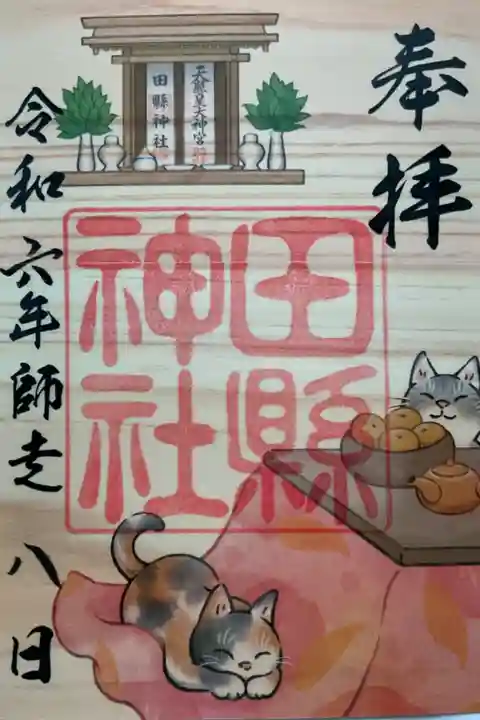 奉拝
天照皇大神宮
田縣神社
田縣
神社
令和六年師走 八日